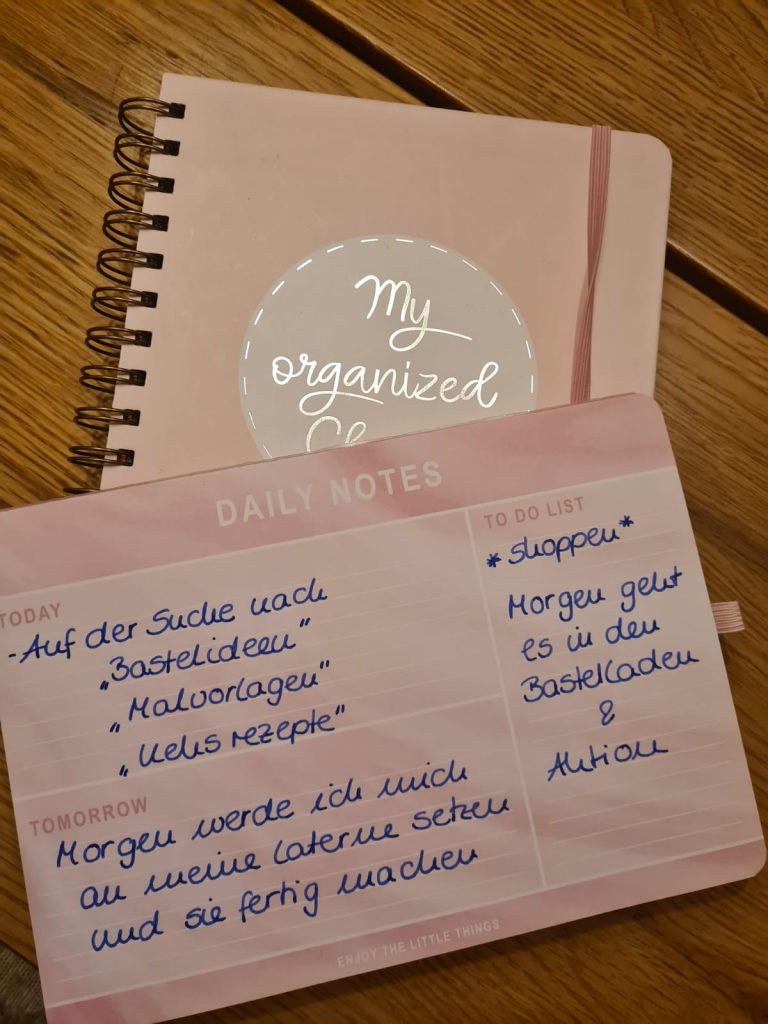 My
organized
DAILY NOTES
TODAY
-Auf der Suche nach
„Bastelideen"
„Malvorlagen"
„Keksrezepte"
TOMORROW
Morgen werde ich mich
an meine Laterne setzen
und sie fertig machen
TO DO LIST
*shoppen*
Morgen geht
es in den
Bastelladen
&
Aktion
ENJOY THE LITTLE THINGS